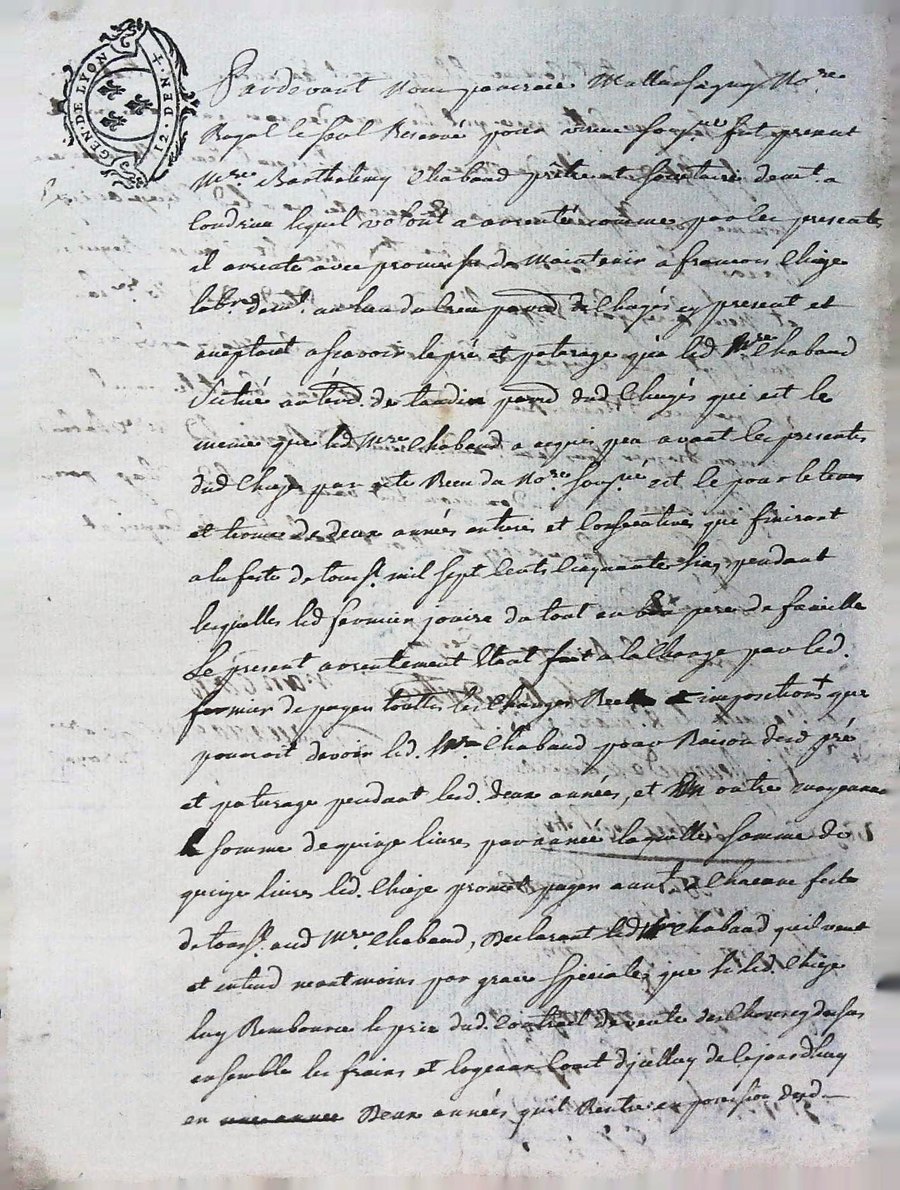 GEN·DE LYON · 12 · DEN ·
Pardevant Nous Nore
Royal Reservé pour vieme soupné fut present
Mre Barthelemy Chabaud prêtre et secretaire demt. a
Condrieu lequel volont a arrenté comme par les presentes
il arrente avec promesse de maintenir a francois Chieze
labr. demt. au lieu de ey present et
aceptant ascavoir le pré et paturage qua led Mre Chabaud
Scitué au de parod dud qui est le
meme que led Mre Chabaud a acquis peu avant les presentes
dud Chieze par acte Recu du Nore soupné est le pour le tems
et terme de deux années entieres et Consecutives qui finiront
a la feste de touss. mil sept Cents Cinquante six, pendant
lesquelles led fermier jouira du tout en bon pere de famille
Le present arrentement Etant fait a la Charge par led.
fermier de payer touttes les Charges et impositions que
pouroit devoir led. Mre Chabaud pour Raison dud pré
et paturage pendant lesd. deux années, et En outre moyennant
la somme de quinze livres par année laquelle somme de
quinze livres led. Chieze promet payer a Chacune feste
de touss. aud Mre Chabaud, Declarant led Mre Chabaud quil veut
et entend neantmoins par grace speciales que si led. Chieze
luy Rembource le prix dud. Contract de vente
ensemble les frains et loyeaux Couts djcelluy de ce jourdhuy
en une année Deux années quil Rentre en possession dud.